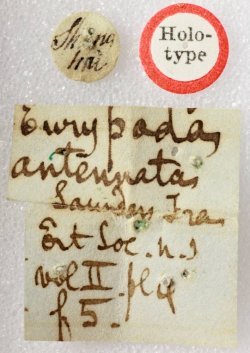 Shang
hai
Holo-
type
Eurypoda
antennata
Saunders Tra
Ent Soc. n.s
vol II pl 4
f 5.